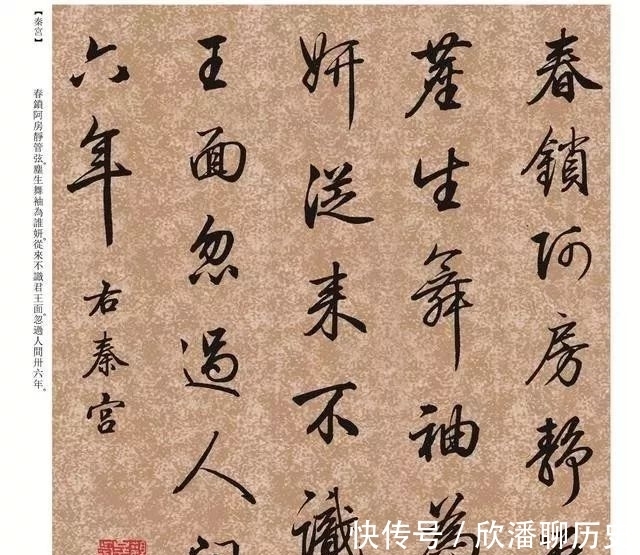 春鎖阿房靜
塵生舞袖為
妍從来不識
王面忽過人間
六年 右秦宮
【秦宮】 春鎖阿房靜管弦。塵生舞袖為誰妍。從來不識君王面。忽過人間卅六年。
快传号 / 欣潘聊历史